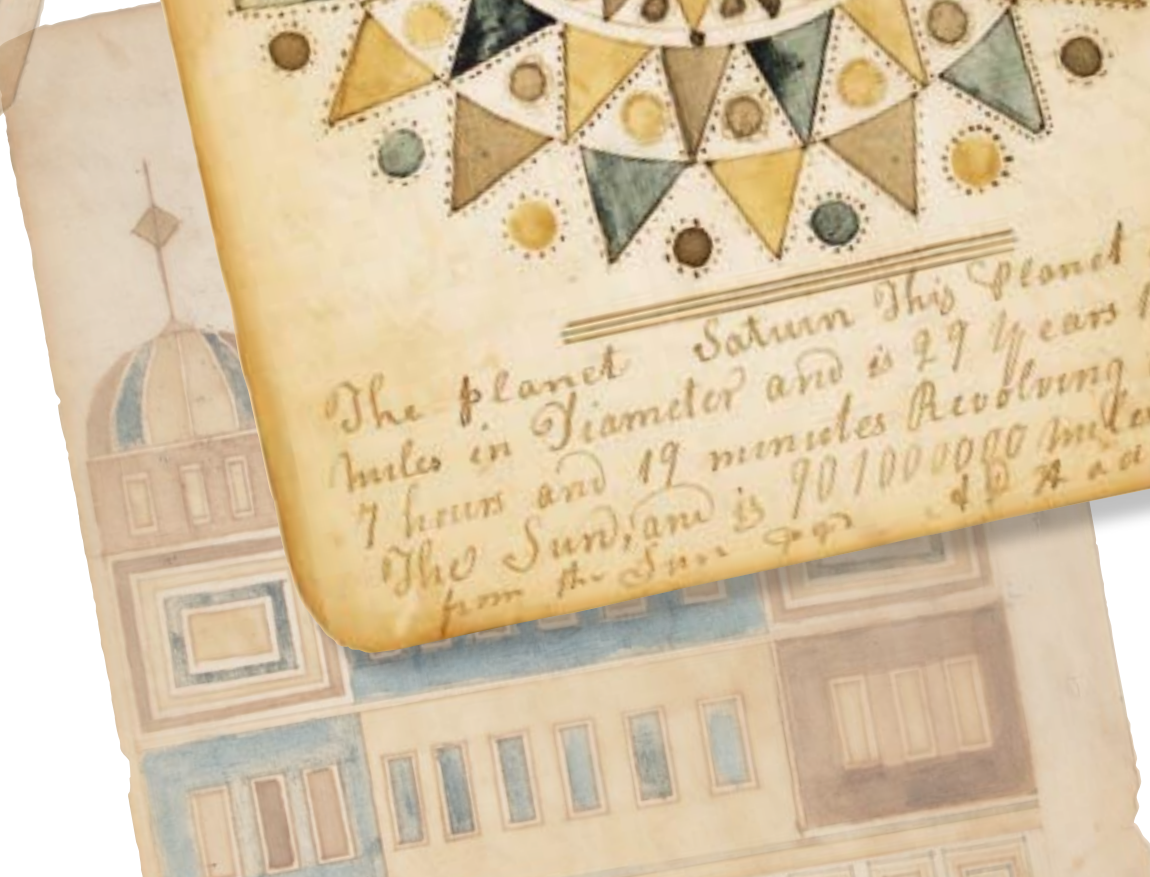 The planet Saturn This Planet
miles in Diameter and is 29 Years
7 hours and 19 minutes Revolving
The Sun, and is 901000000 miles
from the Sun